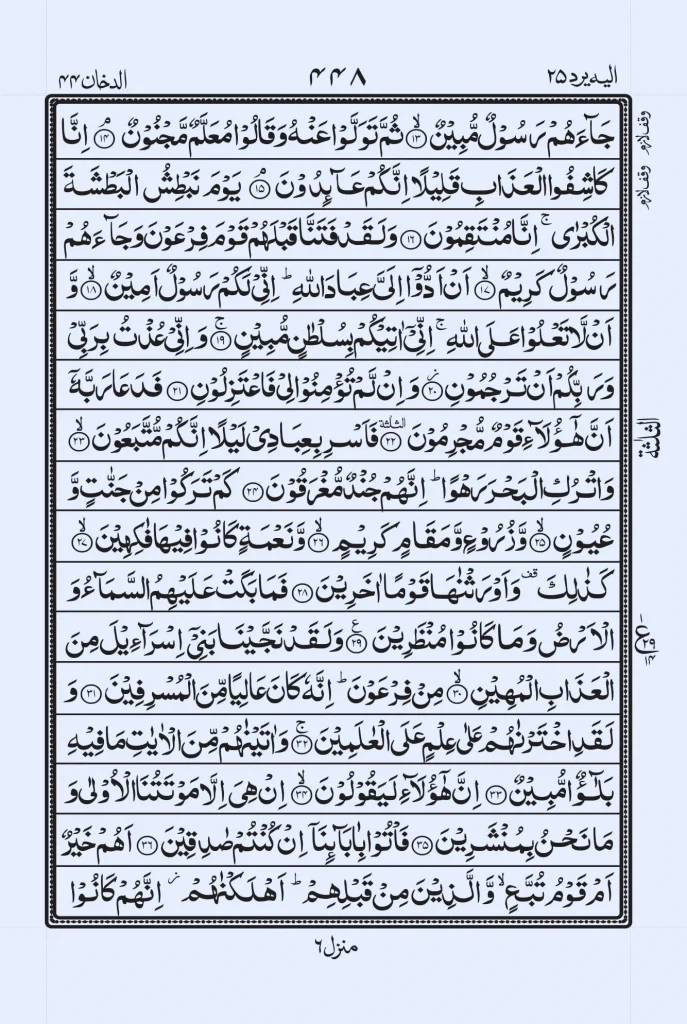 الیه یرد ۲۵
۴۴۸
الدخان ۴۴
جَآءَهُمْ رَسُوْلٌ مُّبِيْنٌ ۙ﴿۱۳﴾ ثُمَّ تَوَلَّوْا عَنْهُ وَقَالُوْا مُعَلَّمٌ مَّجْنُوْنٌ ۘ﴿۱۴﴾ اِنَّا
وقف لازم
كَاشِفُوا الْعَذَابِ قَلِيْلًا اِنَّكُمْ عَآىِٕدُوْنَ ۘ﴿۱۵﴾ يَوْمَ نَبْطِشُ الْبَطْشَةَ
وقف لازم
الْكُبْرٰى ۚ اِنَّا مُنْتَقِمُوْنَ ﴿۱۶﴾ وَلَقَدْ فَتَنَّا قَبْلَهُمْ قَوْمَ فِرْعَوْنَ وَجَآءَهُمْ
رَسُوْلٌ كَرِيْمٌ ۙ﴿۱۷﴾ اَنْ اَدُّوْٓا اِلَيَّ عِبَادَ اللّٰهِ ؕ اِنِّيْ لَكُمْ رَسُوْلٌ اَمِيْنٌ ۙ﴿۱۸﴾ وَّ
اَنْ لَّا تَعْلُوْا عَلَى اللّٰهِ ۚ اِنِّيْٓ اٰتِيْكُمْ بِسُلْطٰنٍ مُّبِيْنٍ ۚ﴿۱۹﴾ وَاِنِّيْ عُذْتُ بِرَبِّيْ
وَرَبِّكُمْ اَنْ تَرْجُمُوْنِ ؗ﴿۲۰﴾ وَاِنْ لَّمْ تُؤْمِنُوْا لِيْ فَاعْتَزِلُوْنِ ﴿۲۱﴾ فَدَعَا رَبَّهٗٓ
اَنَّ هٰٓؤُلَآءِ قَوْمٌ مُّجْرِمُوْنَ ﴿۲۲﴾ الثلثة فَاَسْرِ بِعِبَادِيْ لَيْلًا اِنَّكُمْ مُّتَّبَعُوْنَ ۙ﴿۲۳﴾
الثلثة
وَاتْرُكِ الْبَحْرَ رَهْوًا ؕ اِنَّهُمْ جُنْدٌ مُّغْرَقُوْنَ ﴿۲۴﴾ كَمْ تَرَكُوْا مِنْ جَنّٰتٍ وَّ
عُيُوْنٍ ۙ﴿۲۵﴾ وَّزُرُوْعٍ وَّمَقَامٍ كَرِيْمٍ ۙ﴿۲۶﴾ وَّنَعْمَةٍ كَانُوْا فِيْهَا فٰكِهِيْنَ ۙ﴿۲۷﴾
كَذٰلِكَ ۫ وَاَوْرَثْنٰهَا قَوْمًا اٰخَرِيْنَ ﴿۲۸﴾ فَمَا بَكَتْ عَلَيْهِمُ السَّمَآءُ وَ
الْاَرْضُ وَمَا كَانُوْا مُنْظَرِيْنَ ﴿۲۹﴾ع وَلَقَدْ نَجَّيْنَا بَنِيْٓ اِسْرَآءِيْلَ مِنَ
ع ۲۹
الْعَذَابِ الْمُهِيْنِ ۙ﴿۳۰﴾ مِنْ فِرْعَوْنَ ؕ اِنَّهٗ كَانَ عَالِيًا مِّنَ الْمُسْرِفِيْنَ ﴿۳۱﴾ وَ
لَقَدِ اخْتَرْنٰهُمْ عَلٰى عِلْمٍ عَلَى الْعٰلَمِيْنَ ۚ﴿۳۲﴾ وَاٰتَيْنٰهُمْ مِّنَ الْاٰيٰتِ مَا فِيْهِ
بَلٰٓؤٌا مُّبِيْنٌ ﴿۳۳﴾ اِنَّ هٰٓؤُلَآءِ لَيَقُوْلُوْنَ ۙ﴿۳۴﴾ اِنْ هِيَ اِلَّا مَوْتَتُنَا الْاُوْلٰى وَ
مَا نَحْنُ بِمُنْشَرِيْنَ ﴿۳۵﴾ فَاْتُوْا بِاٰبَآىِٕنَآ اِنْ كُنْتُمْ صٰدِقِيْنَ ﴿۳۶﴾ اَهُمْ خَيْرٌ
اَمْ قَوْمُ تُبَّعٍ ۙ وَّالَّذِيْنَ مِنْ قَبْلِهِمْ ؕ اَهْلَكْنٰهُمْ ؗ اِنَّهُمْ كَانُوْا
منزل ۶